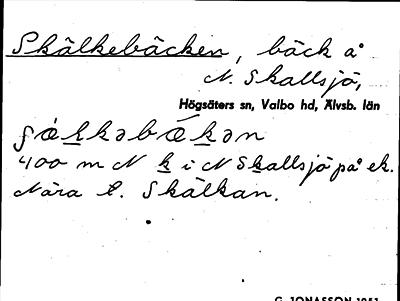 Skälkebäcken, bäck å
N. Skallsjö,
Högsäters sn, Valbo hd, Älvsb. län
400 m N k i N Skallsjö på ek.
Nära t. Skälkan.
G. JONASSON 1951